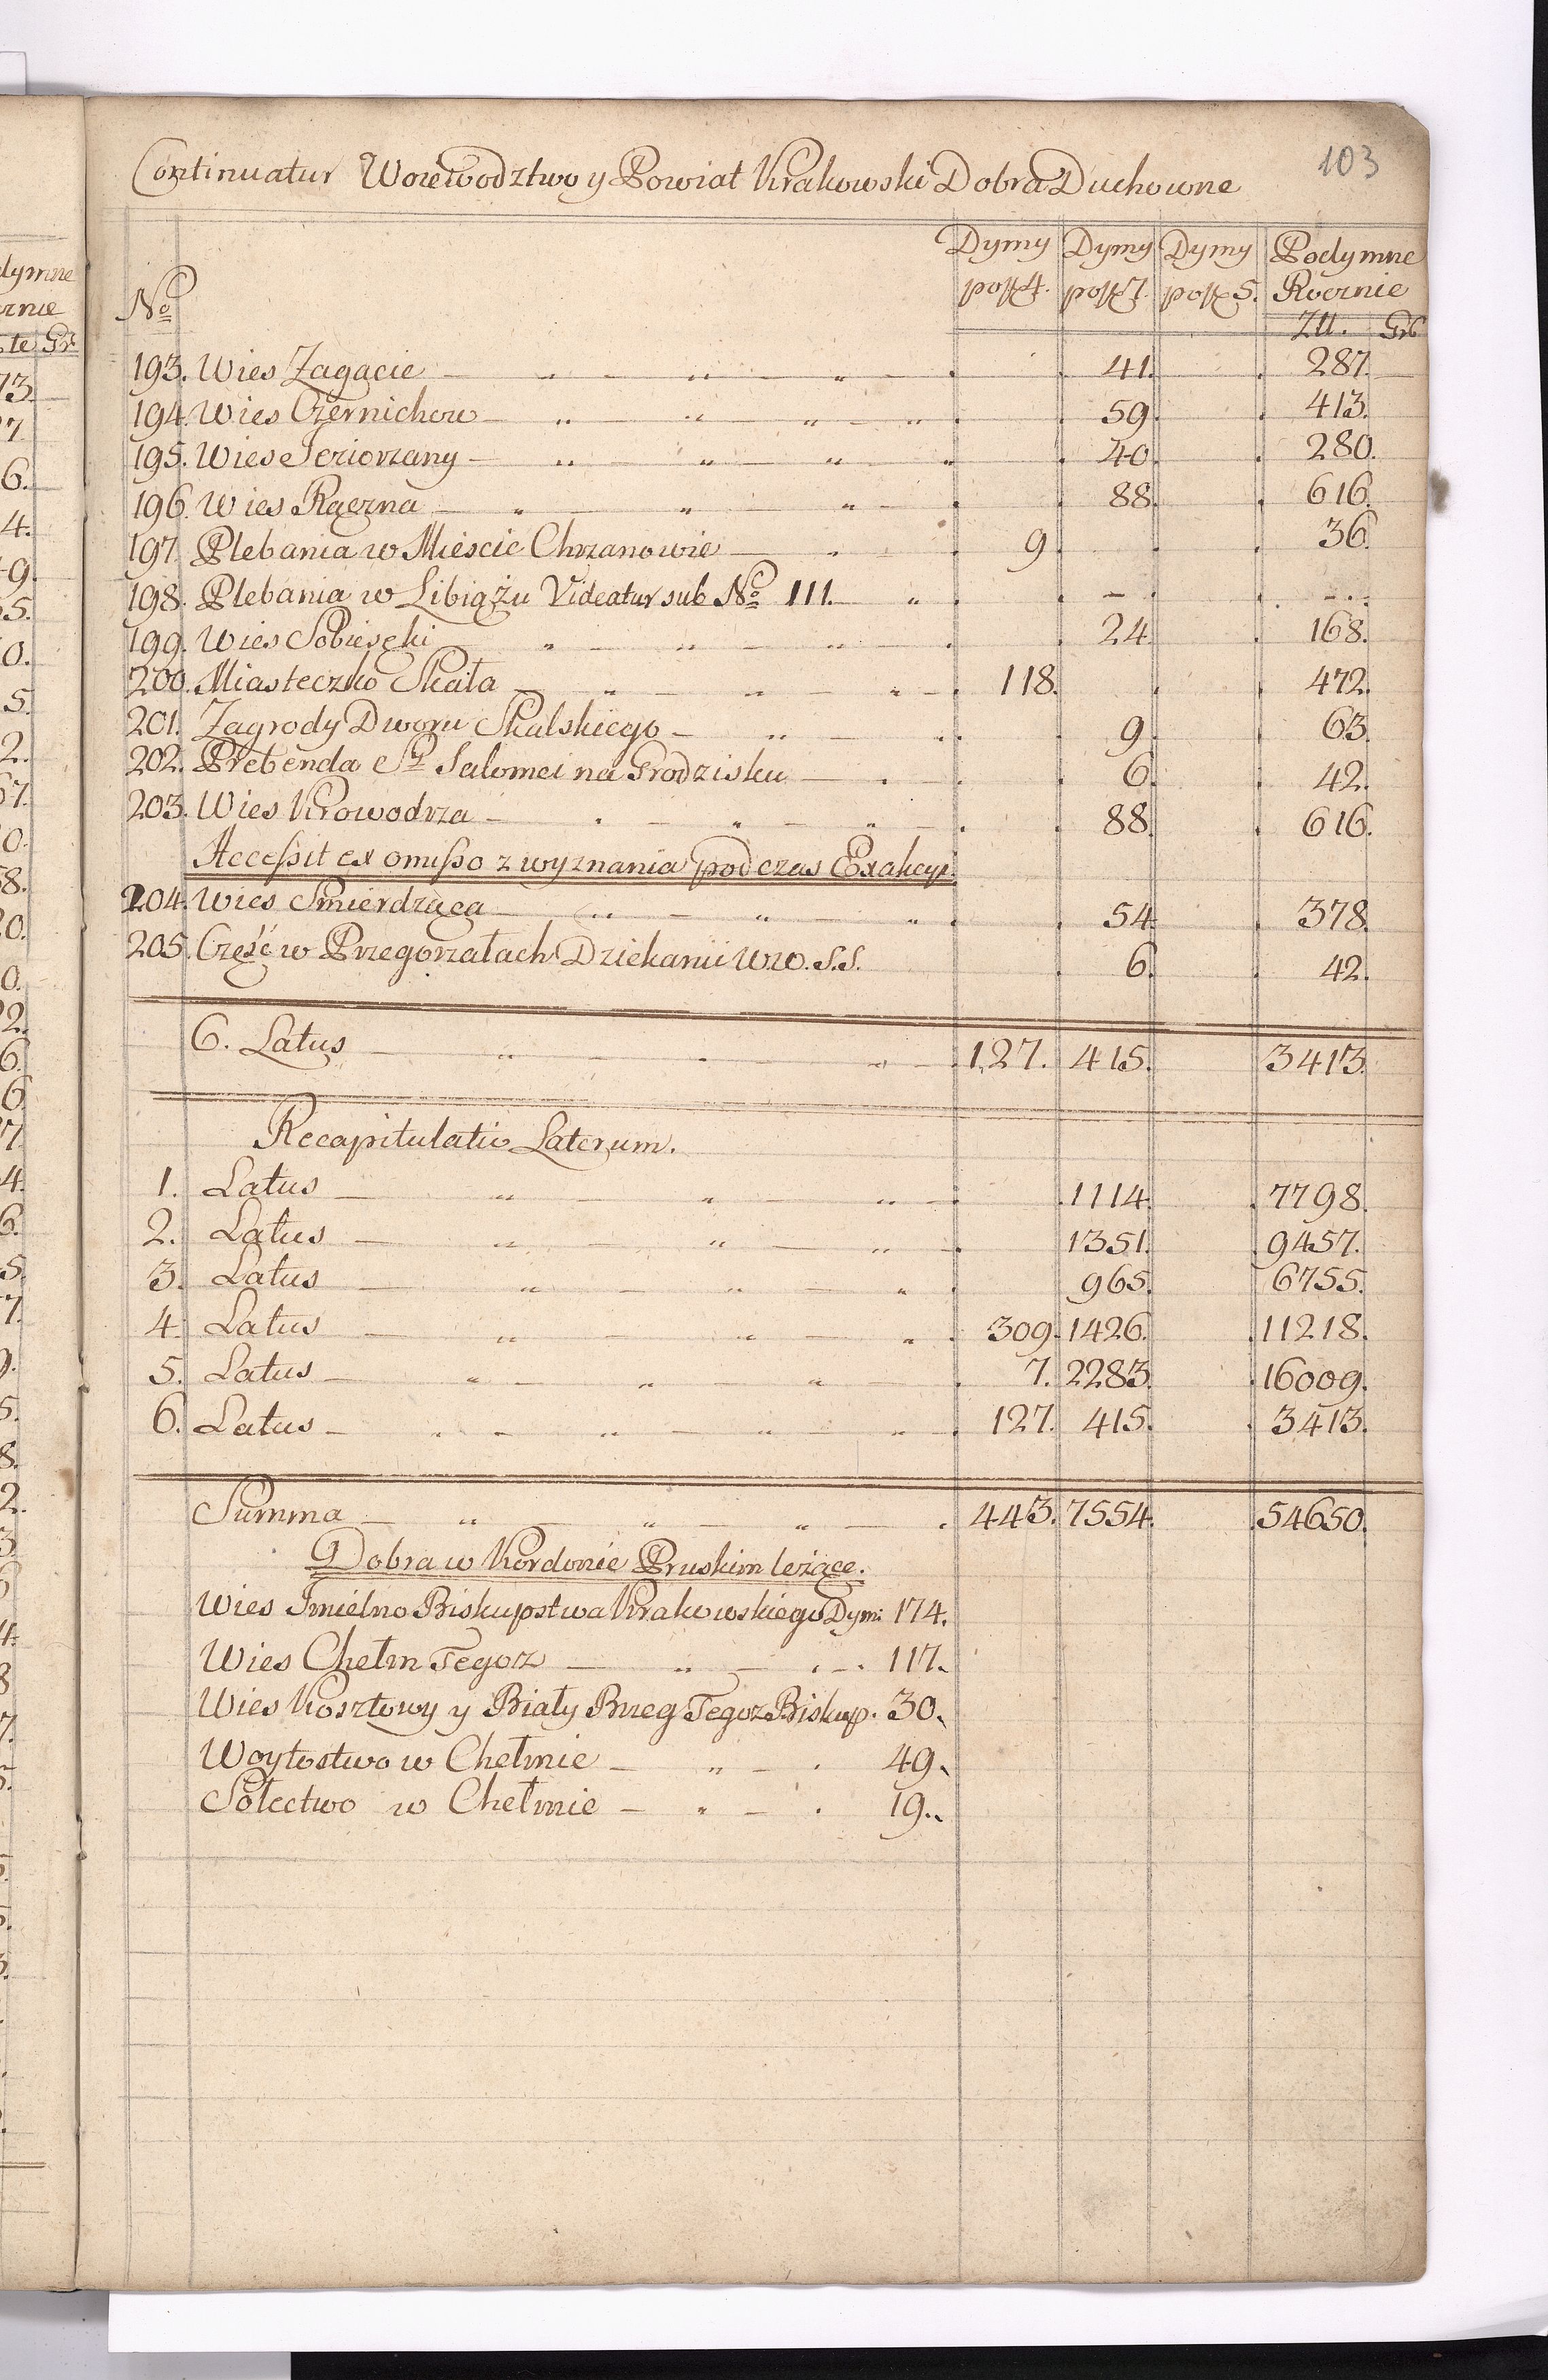 103
Continuatur Woiewodztwo y Powiat Krakowski Dobra Duchowne
No Dymy po f 4. Dymy po f 7. Dymy po f 5. Podymne Rocznie
Zll. Gr
193. Wies Zagacie 41. 287.
194. Wies Czernichow 59. 413.
195. Wies Jeziorzany 40. 280.
196. Wies Rączna 88. 616.
197. Plebania w Miescie Chrzanowie 9. 36.
198. Plebania w Libiążu Videatur sub No 111. - -
199. Wies Sobięsęki 24. 168.
200. Miasteczko Skała 118. 472.
201. Zagrody Dworu Skalskiego 9. 63.
202. Prebenda St Salomei na Grodzisku 6. 42.
203. Wies Krowodrza 88. 616.
Accessit ex omisso z wyznania podczas Exakcyi
204. Wies Smierdząca 54. 378.
205. Część w Przegorzałach Dziekanii WW. S.S. 6. 42.
6. Latus 127. 415. 3413.
Recapitulatio Laterum.
1. Latus 1114. 7798.
2. Latus 1351. 9457.
3. Latus 965. 6755.
4. Latus 309. 1426. 11218.
5. Latus 7. 2283. 16009.
6. Latus 127. 415. 3413.
Summa 443. 7554. 54650.
Dobra w Kordonie Pruskim leżące.
Wies Imielno Biskupstwa Krakowskiego Dym: 174.
Wies Chełm Tegoz 117.
Wies Kosztowy y Biały Brzeg Tegoz Biskup. 30.
Woytostwo w Chełmie 49.
Sołectwo w Chełmie 19.